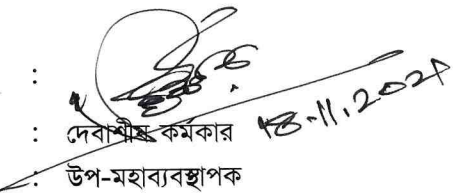 :
: দেবাশীষ কর্মকার 18-11.2021
: উপ-মহাব্যবস্থাপক